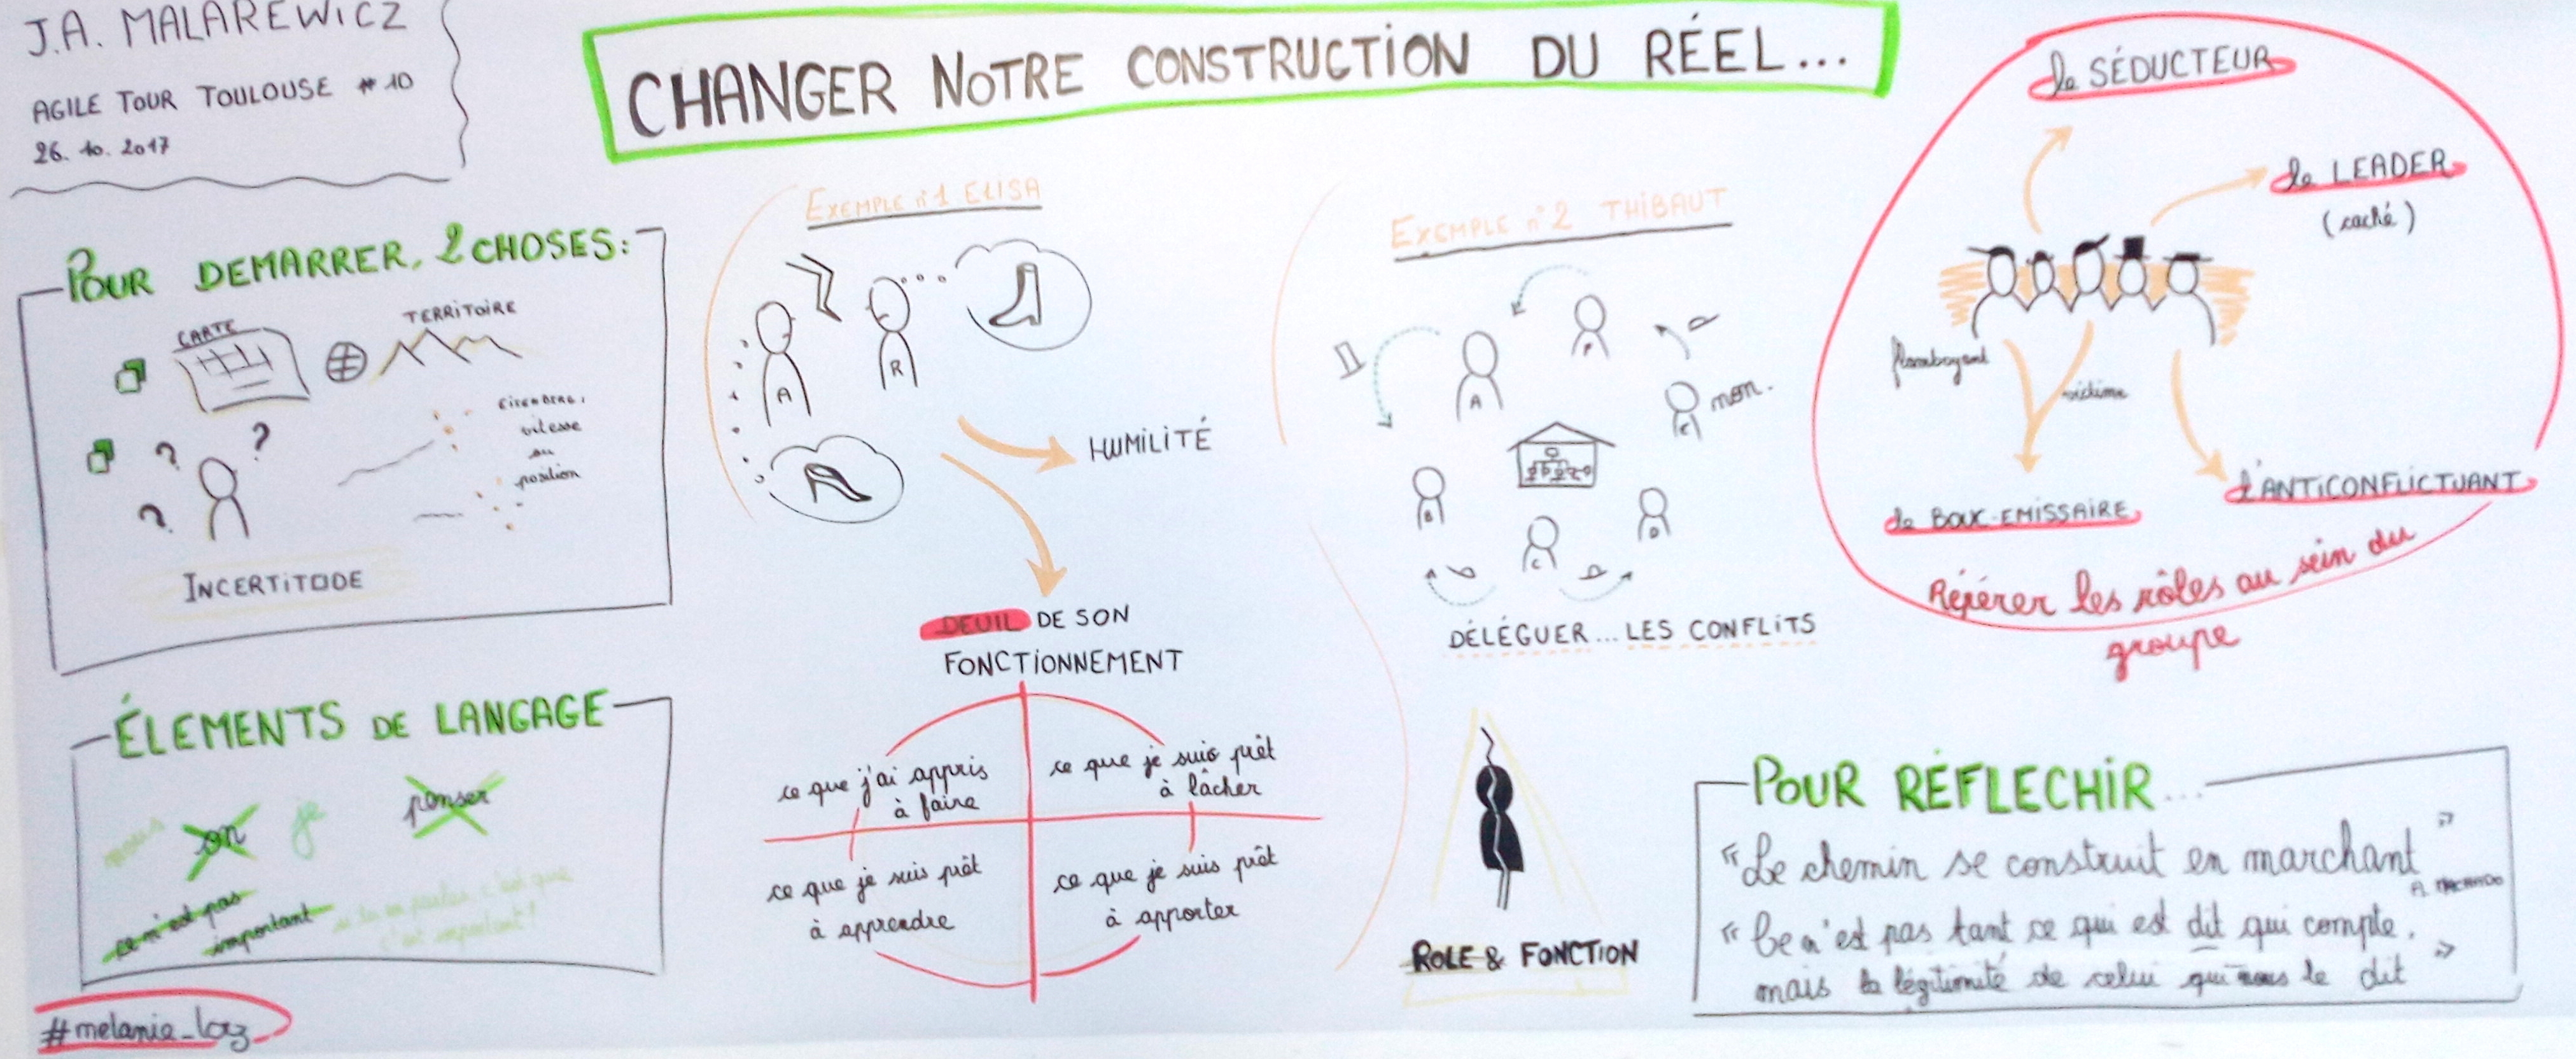 J.A. MALAREWICZ
AGILE TOUR TOULOUSE #10
26.10.2017
CHANGER NOTRE CONSTRUCTION DU RÉEL...
POUR DEMARRER, 2 CHOSES:
CARTE
TERRITOIRE
?
?
?
vitesse
ou
position
INCERTITUDE
ÉLEMENTS DE LANGAGE
nous
on
je
penser
ce n'est pas
important
si tu en parles c'est que
c'est important!
#melanie_loz
EXEMPLE n°1 ELISA
A
R
HUMILITÉ
DEUIL DE SON
FONCTIONNEMENT
ce que j'ai appris
à faire
ce que je suis prêt
à lâcher
ce que je suis prêt
à apprendre
ce que je suis prêt
à apporter
EXEMPLE n°2 THIBAUT
A
P
E
non.
B
C
D
DÉLÉGUER... LES CONFLITS
ROLE & FONCTION
le SÉDUCTEUR
le LEADER
(caché)
flamboyant
victime
le BOUC-EMISSAIRE
l'ANTICONFLICTUANT
Répérer les rôles au sein du
groupe
POUR RÉFLECHIR...
"Le chemin se construit en marchant"
A. MACHADO
"Ce n'est pas tant ce qui est dit qui compte,
mais la légitimité de celui qui nous le dit"